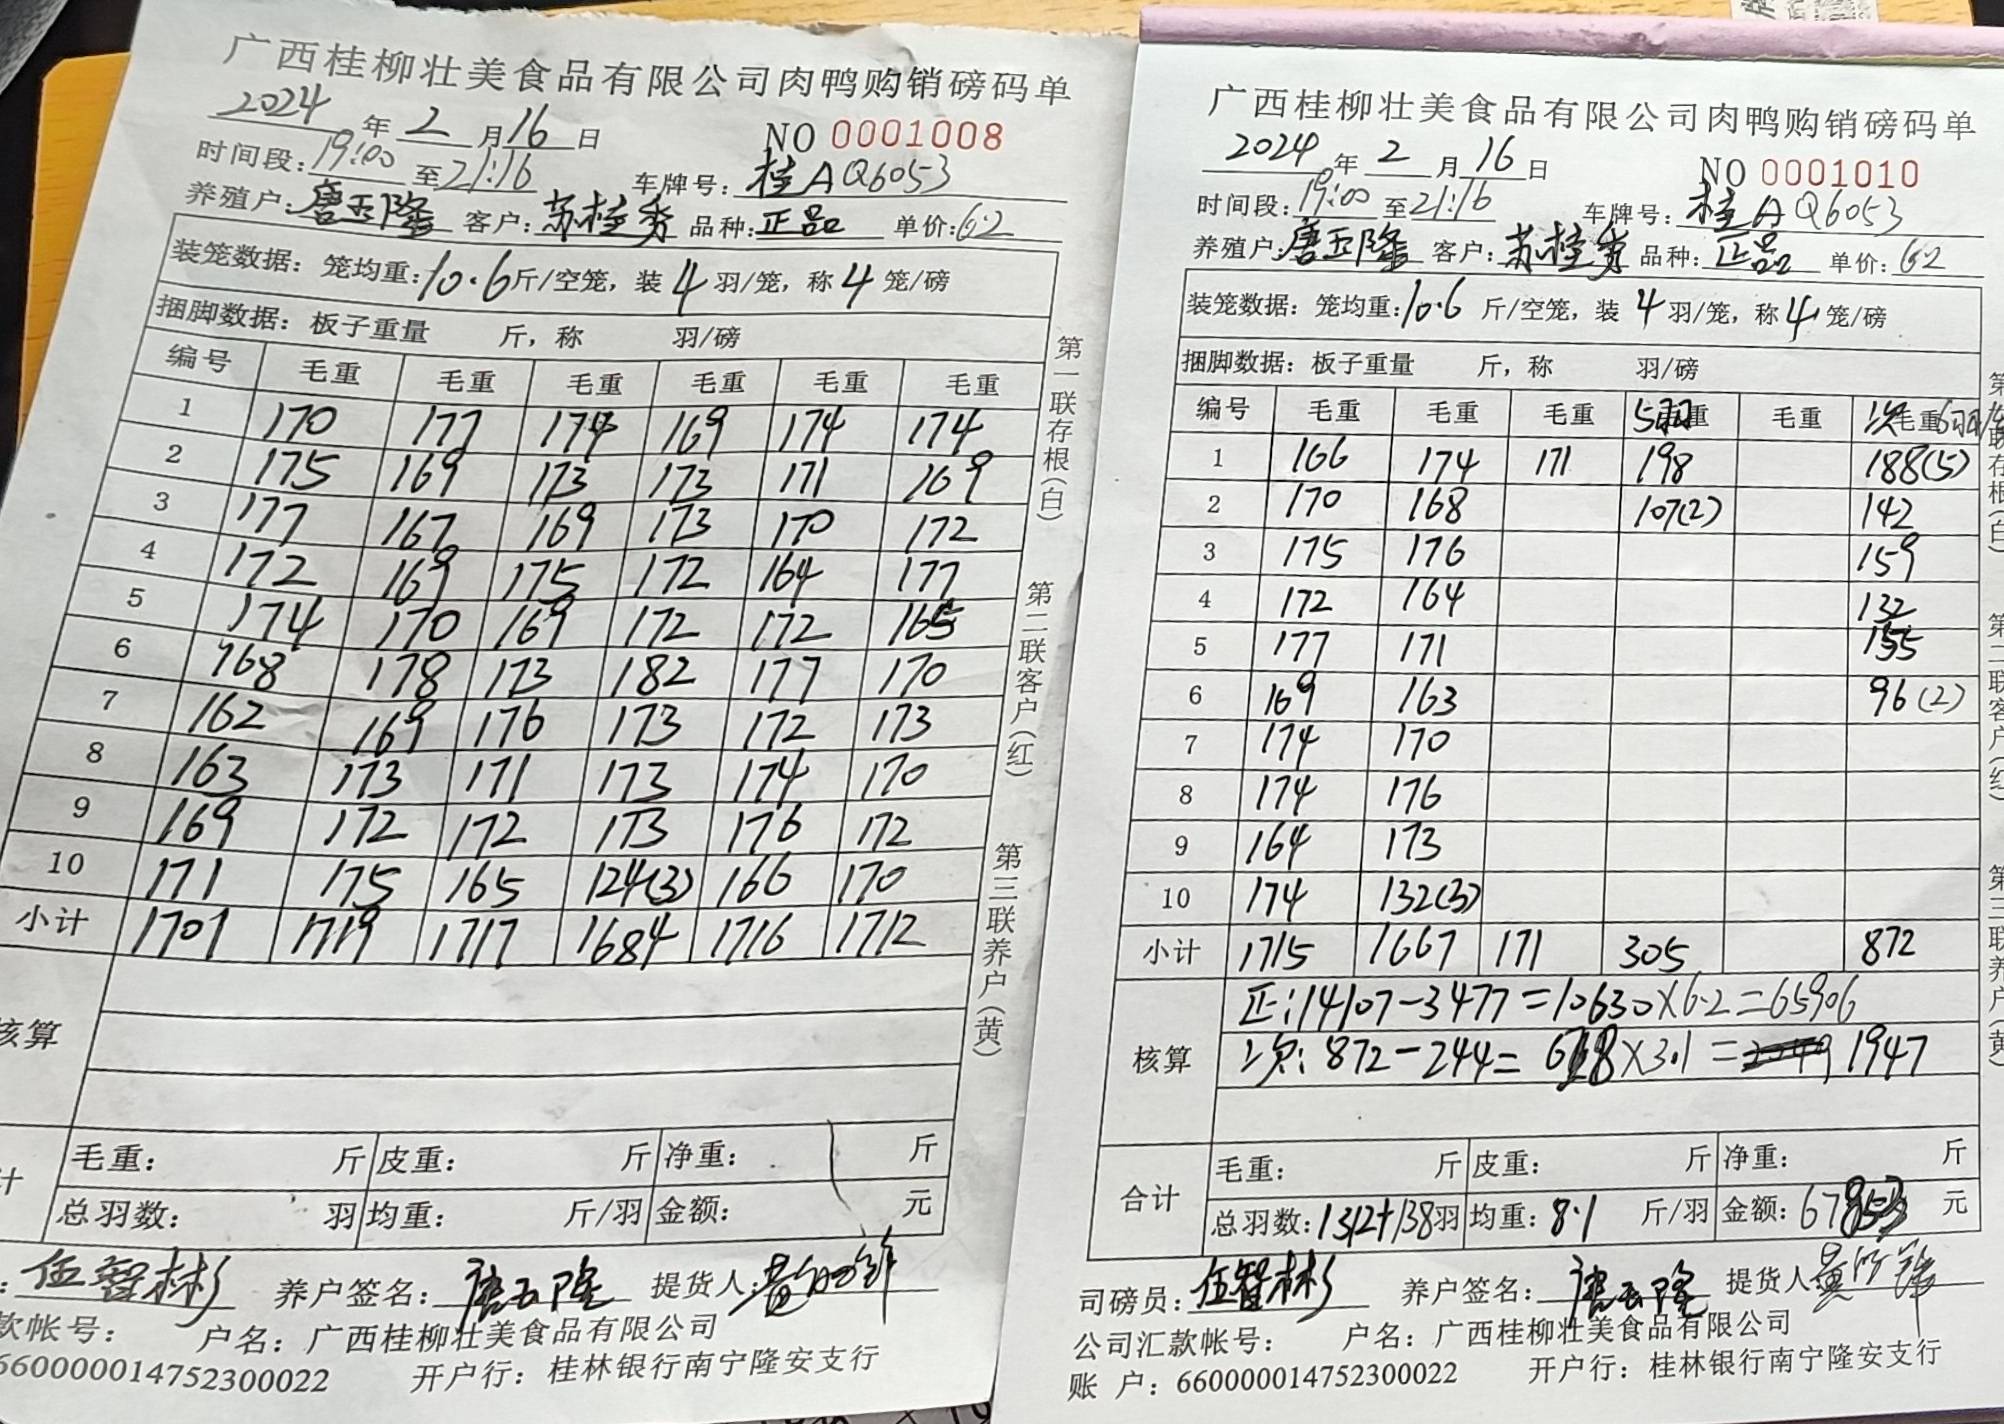 广西桂柳壮美食品有限公司肉鸭购销磅码单
2024 年 2 月 16 日 NO 0001008
时间段: 19:00 至 21:16 车牌号: 桂A Q6053
养殖户: 唐玉隆 客户: 苏桂秀 品种: 正品 单价: 6.2
装笼数据: 笼均重: 10.6 斤/空笼, 装 4 羽/笼, 称 4 笼/磅
捆脚数据: 板子重量 斤, 称 羽/磅
编号 毛重 毛重 毛重 毛重 毛重 毛重
1 170 177 174 169 174 174
2 175 169 173 173 171 169
3 177 167 169 173 170 172
4 172 169 175 172 164 177
5 174 170 169 172 172 165
6 168 178 173 182 177 170
7 162 169 176 173 172 173
8 163 173 171 173 174 170
9 169 172 172 173 176 172
10 171 175 165 124(3) 166 170
小计 1701 1719 1717 1684 1716 1712
核算
毛重: 斤 皮重: 斤 净重: 斤
计
总羽数: 羽 均重: 斤/羽 金额: 元
: 伍智彬 养户签名: 唐玉隆 提货人:
款帐号: 户名: 广西桂柳壮美食品有限公司
660000014752300022 开户行: 桂林银行南宁隆安支行
第一联存根(白) 第二联客户(红) 第三联养户(黄)
广西桂柳壮美食品有限公司肉鸭购销磅码单
2024 年 2 月 16 日 NO 0001010
时间段: 19:00 至 21:16 车牌号: 桂A Q6053
养殖户: 唐玉隆 客户: 苏桂秀 品种: 正品 单价: 6.2
装笼数据: 笼均重: 10.6 斤/空笼, 装 4 羽/笼, 称 4 笼/磅
捆脚数据: 板子重量 斤, 称 羽/磅
编号 毛重 毛重 毛重 5羽 毛重 毛重 次 毛重 6羽
1 166 174 171 198 188(5)
2 170 168 107(2) 142
3 175 176 159
4 172 164 132
5 177 171 155
6 169 163 96(2)
7 174 170
8 174 176
9 164 173
10 174 132(3)
小计 1715 1667 171 305 872
核算
正: 14107-3477=10630×6.2=65906
次: 872-244=628×3.1= 1947
毛重: 斤 皮重: 斤 净重: 斤
合计
总羽数: 1312+138 羽 均重: 8.1 斤/羽 金额: 67853 元
司磅员: 伍智彬 养户签名: 唐玉隆 提货人
公司汇款帐号: 户名: 广西桂柳壮美食品有限公司
账 户: 660000014752300022 开户行: 桂林银行南宁隆安支行